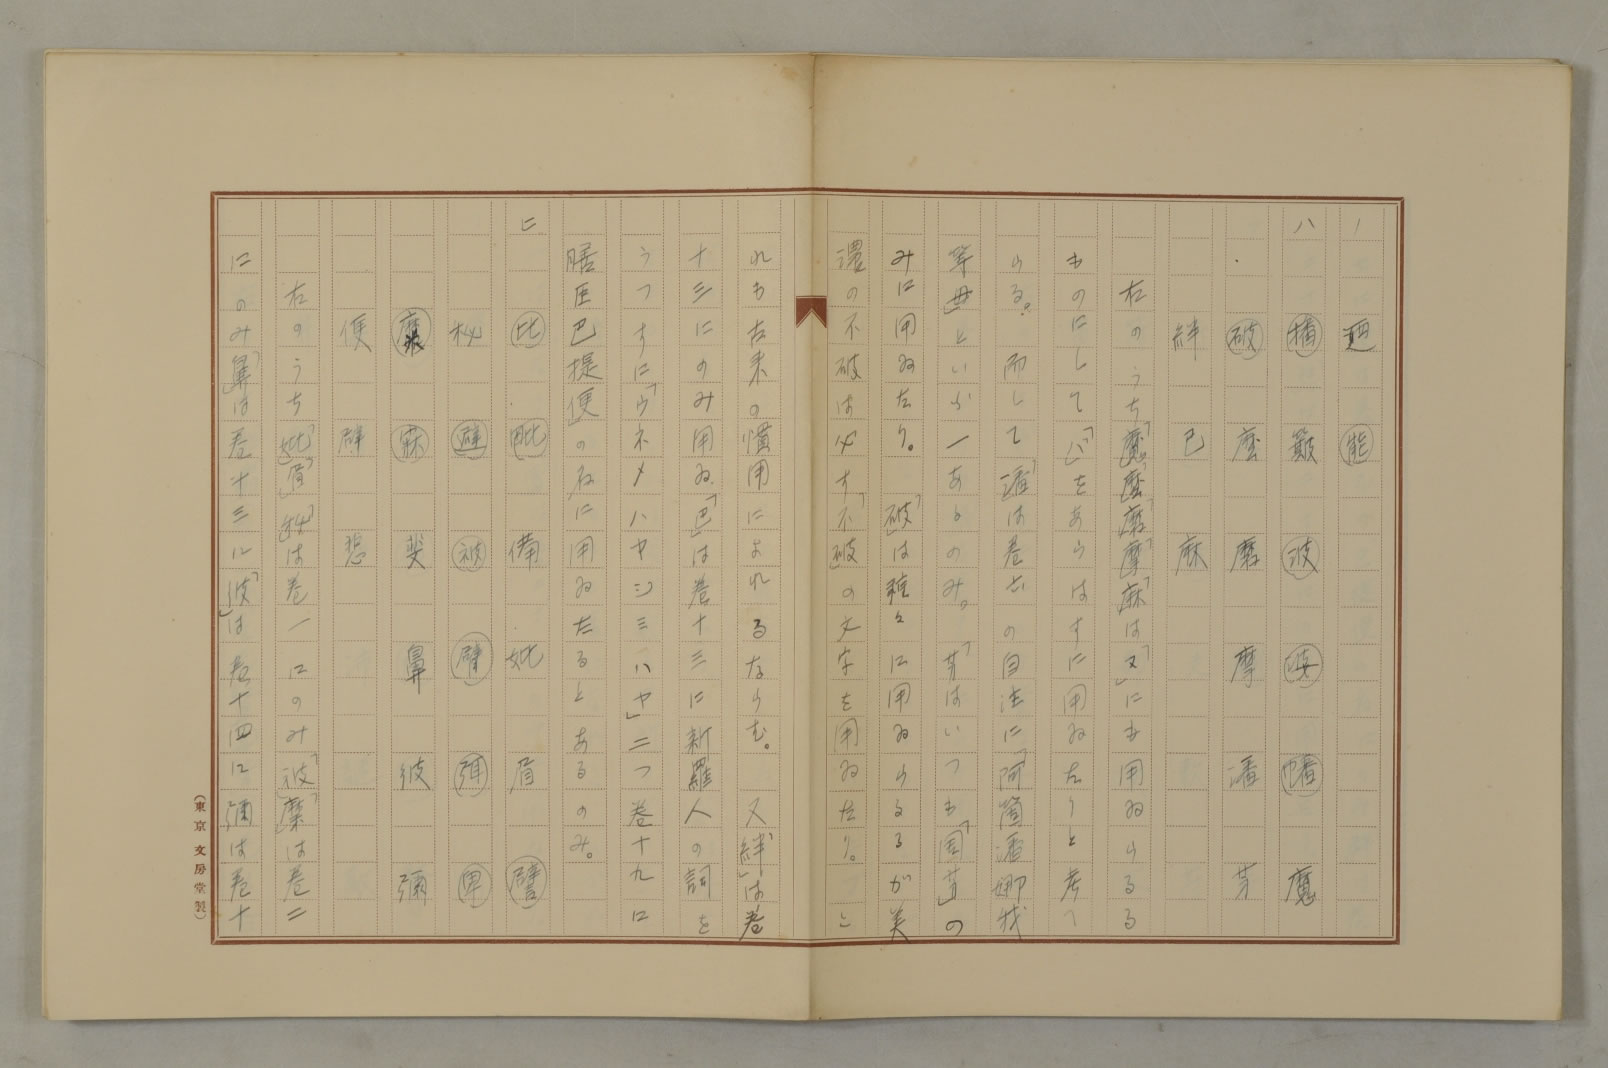 ノ 廼 能
ハ 播 簸 波 婆 幡 魔
破 麼 磨 摩 潘 芽
絆 巴 麻
右のうち「魔」「麼」「磨」「摩」「麻」は「又」にも用ゐらるる
ものにして「バ」をあらはすに用ゐたりと考へ
らる。而して「潘」は巻六の自注に「阿箇潘娜我
等母」といふ一あるのみ。「芽」はいつも「国芽」の
みに用ゐたり。「破」は種々に用ゐらるるが美
濃の不破は必す「不破」の文字を用ゐたり。こ
れも古来の慣用によれるならむ。又「絆」は巻
十三にのみ用ゐ「巴」は巻十三に新羅人の詞を
うつすに「ウネメハヤミミハヤ」二つ巻十九に
膳臣巴提便」の名に用ゐたるとあるのみ。
ヒ 比 毗 備 妣 眉 譬
秘 避 被 臂 弭 卑
糜 寐 斐 鼻 彼 彌
便 辟 悲
右のうち「妣」「眉」「妣」は巻一にのみ「被」「糜」は巻二
にのみ「鼻」は巻十三に「彼」は巻十四に彌は巻十
(東京 文房堂製)